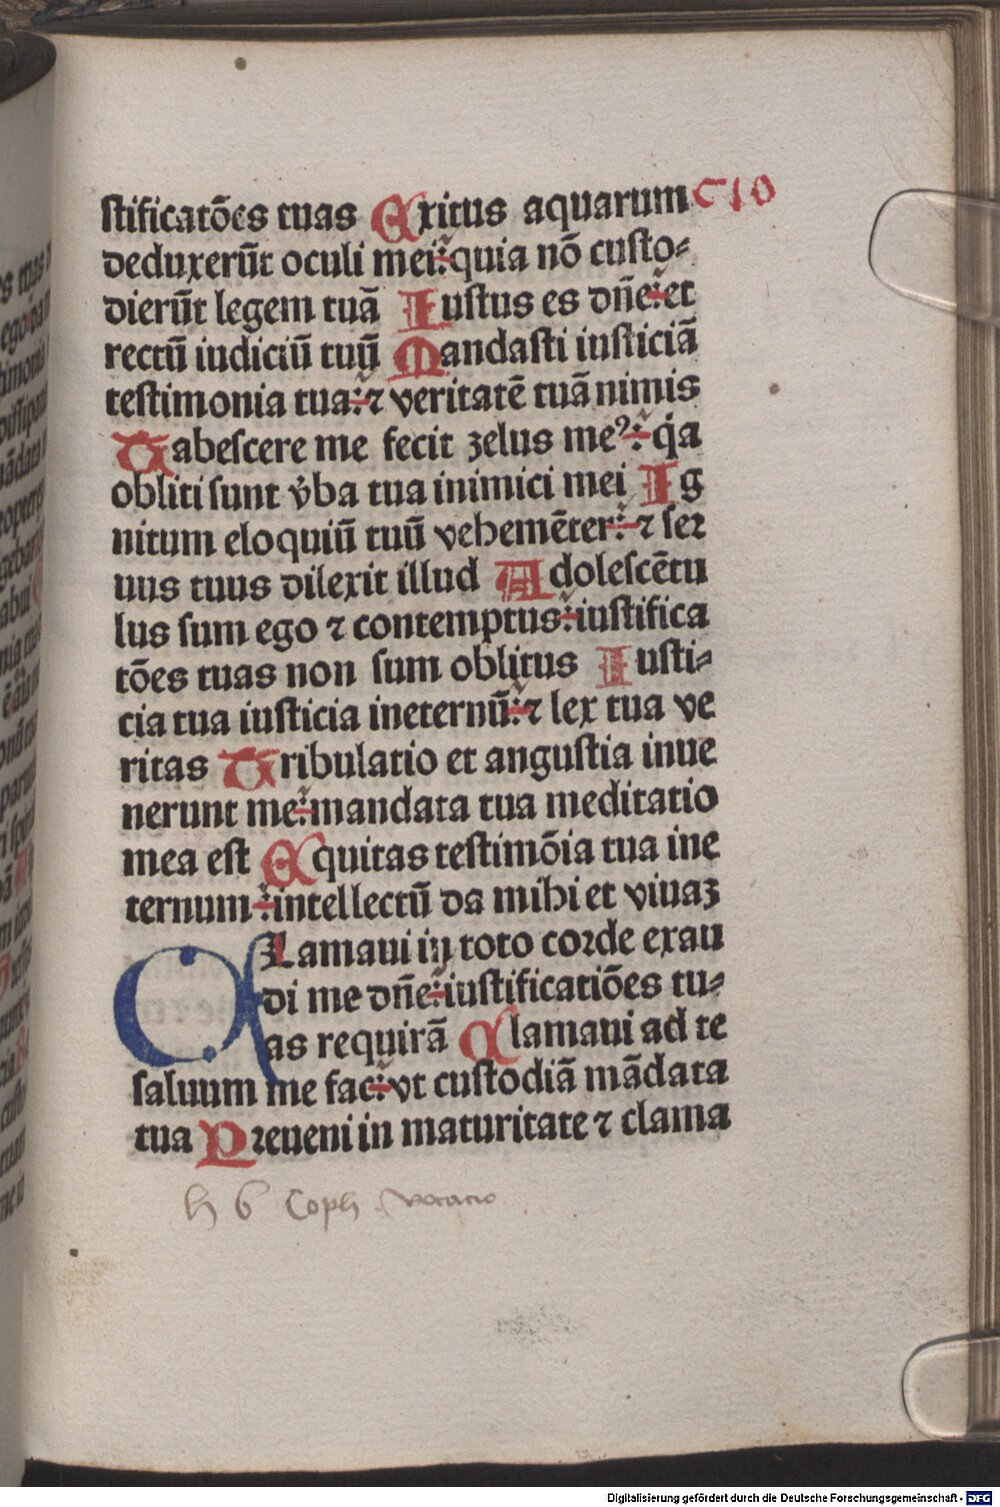 stificatões tuas Exitus aquarum C10
deduxerūt oculi mei: quia nō custo-
dierūt legem tuā Iustus es dn̄e: et
rectū iudiciū tuū Mandasti iusticiā
testimonia tua: ⁊ veritatē tuā nimis
Tabescere me fecit zelus meꝰ: q̇a
obliti sunt v̇ba tua inimici mei Ig
nitum eloquiū tuū vehemēter: ⁊ ser
uus tuus dilexit illud Adolescētu
lus sum ego ⁊ contemptus: iustifica
tōes tuas non sum oblitus Iusti-
cia tua iusticia ineternū: ⁊ lex tua ve
ritas Tribulatio et angustia inue
nerunt me: mandata tua meditatio
mea est Equitas testimōia tua ine
ternum: intellectū da mihi et viuaꝫ
CLamaui in toto corde exau
di me dn̄e: iustificatiōes tu-
as requirā Clamaui ad te
saluum me fac: vt custodiā mādata
tua Preueni in maturitate ⁊ clama
h 6 Coph vocacio
Digitalisierung gefördert durch die Deutsche Forschungsgemeinschaft - DFG